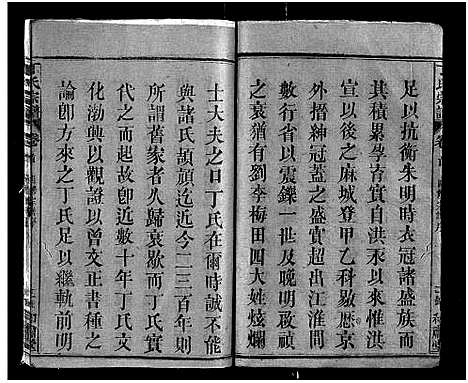 足以抗衡朱明時衣冠諸盛族而
其積累孕育實自洪永以來惟洪
宣以後之麻城登甲乙科敭歷京
外搢紳冠葢之盛實超出江淮間
數行省以震鑠一世及晚明世族
之衰猶有劉李梅田四大姓炫爛
士大夫之口丁氏在爾時誠不能
與諸氏頡頏迄近今二三百年則
所謂舊家者人歸衰歇而丁氏文
代之而起卽近數十年丁氏文
化渤興以觀證以曾文正書種之
論卽方來之丁氏足以繼軌前明